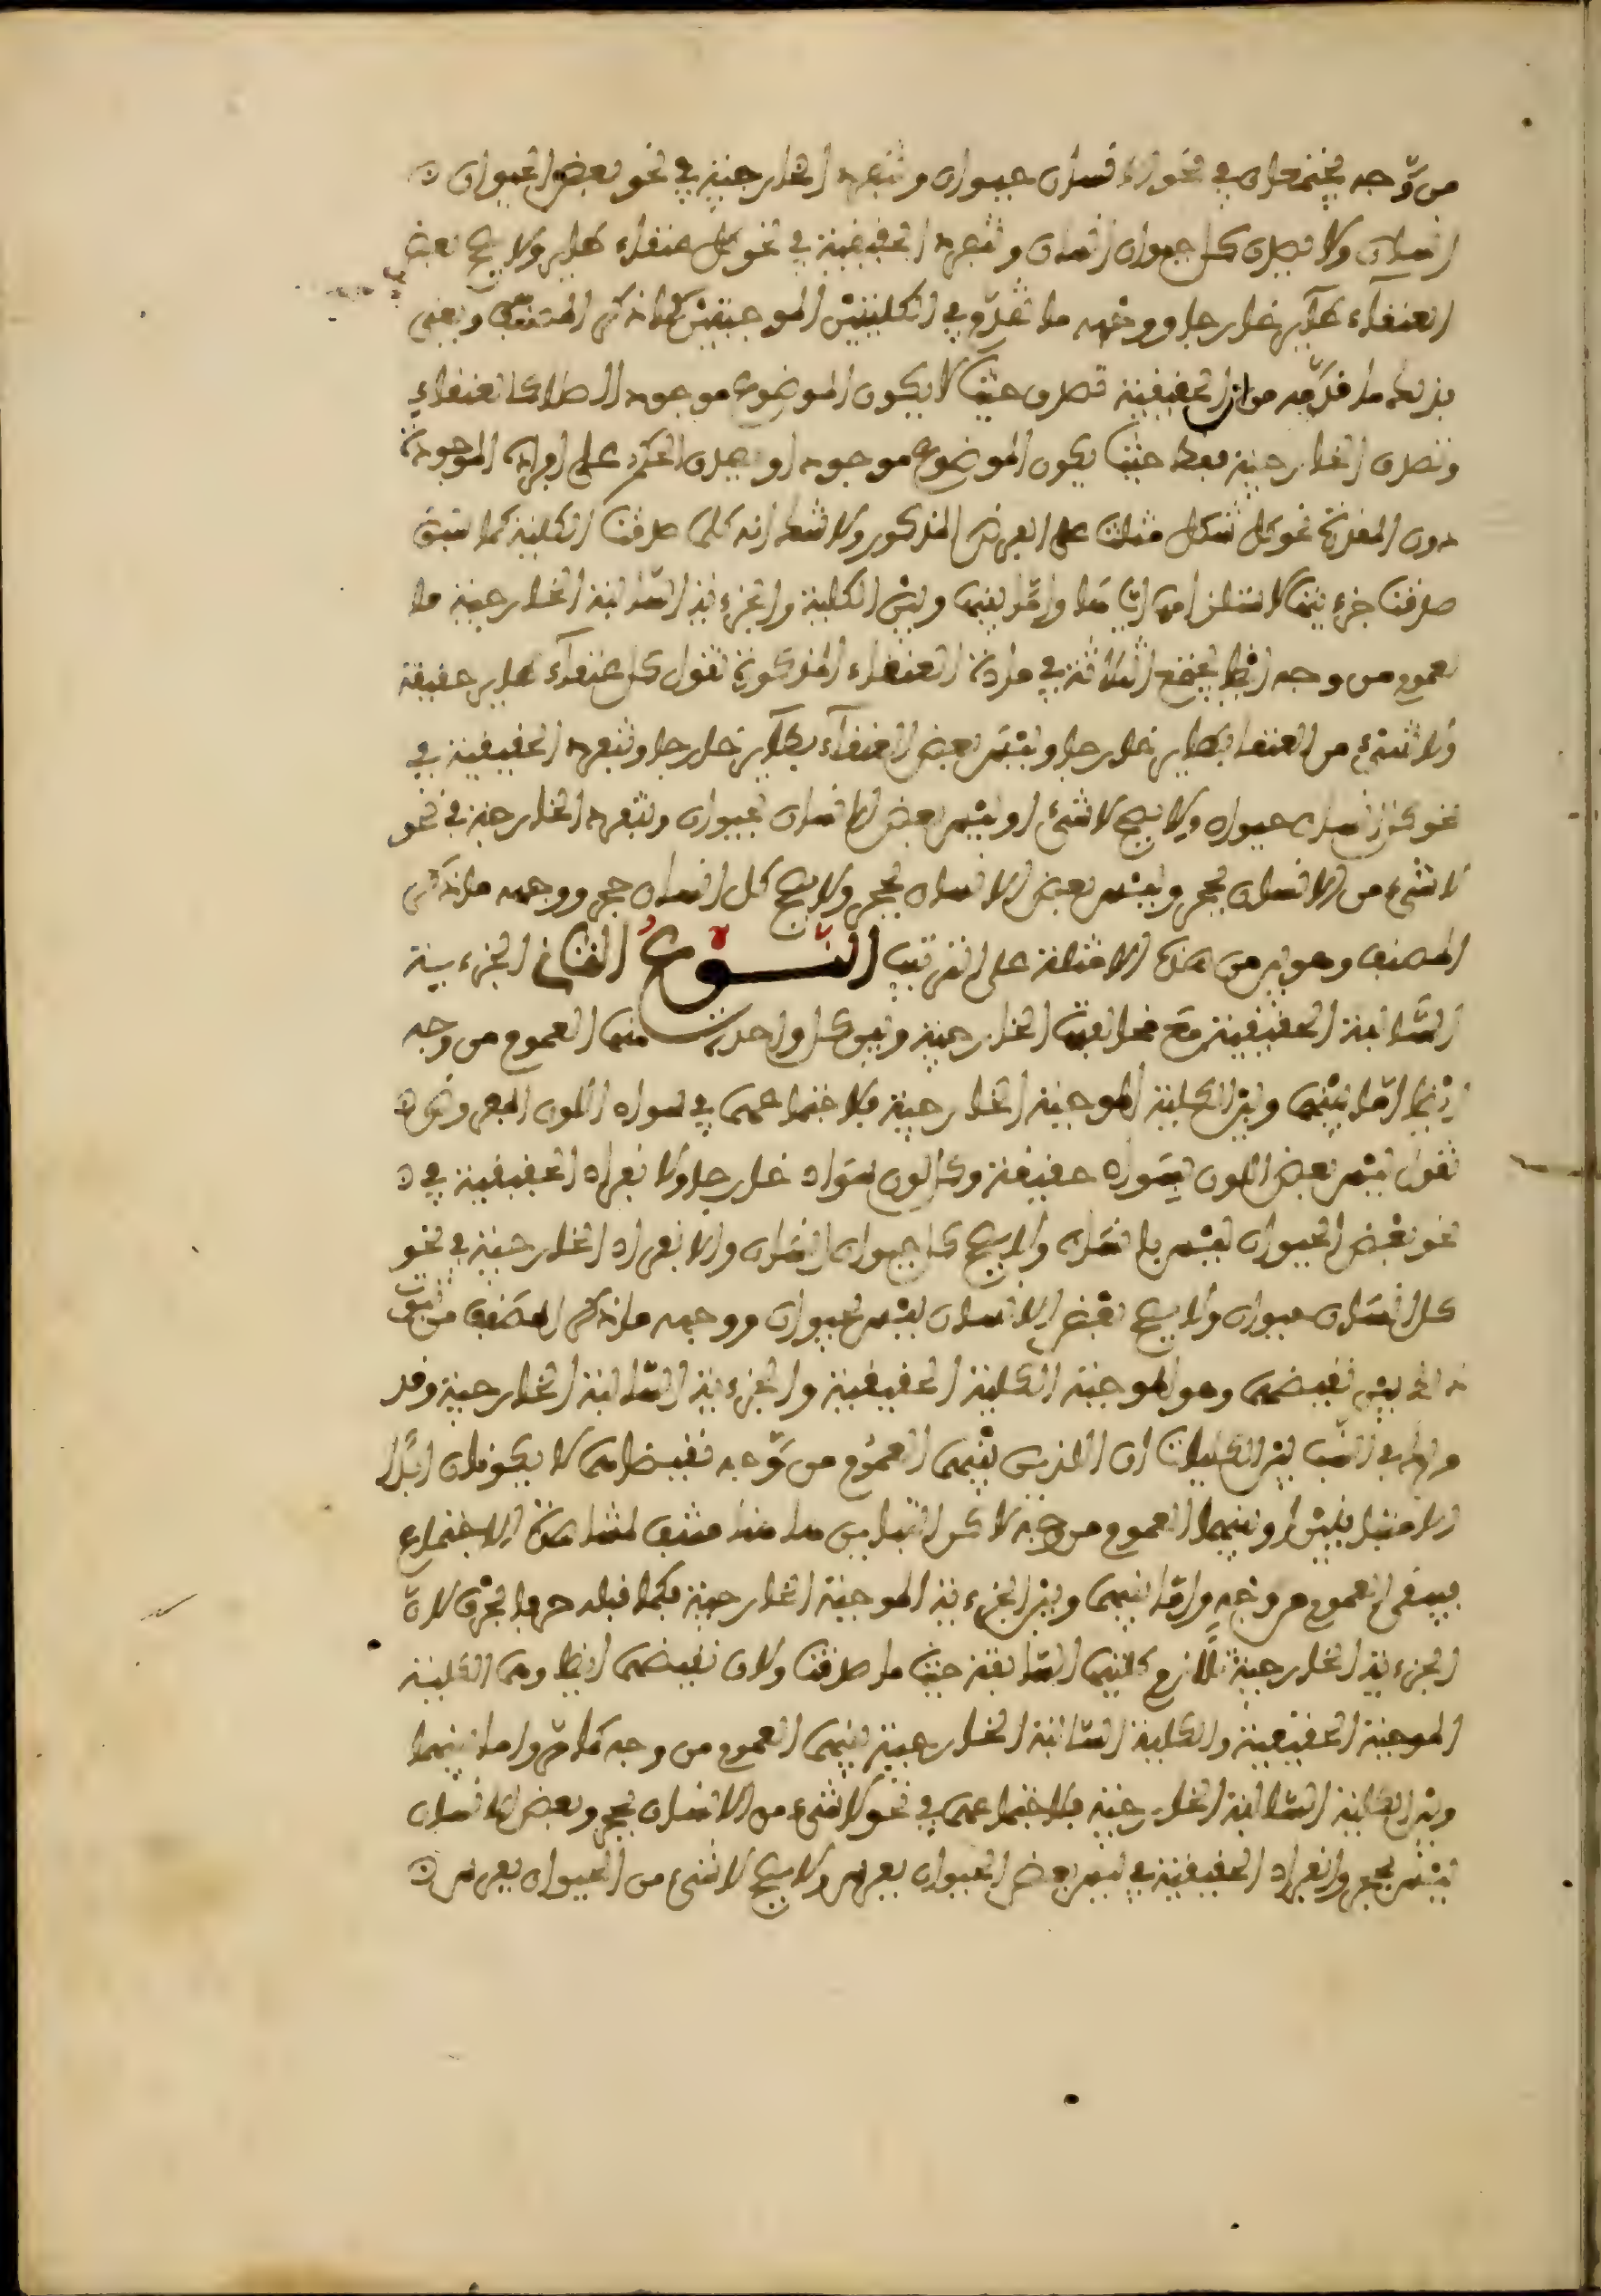 من وجه يجتمعان في نحو كل انسان حيوان وتنفرد الخارجية في نحو بعض الحيوان
انسان ولا يصدق كل حيوان انسان وتنفرد الحقيقية في نحو كل عنقاء طاير ولا يصح بعض
العنقاء طاير خارجا ووجهه ما تقدم في الكليتين الموجبتين كما ذكر المصنف ويعني
بذلك ما قدمه من ان الحقيقية تصدق حيث لا يكون الموضوع موجودا اصلا كالعنقاء
وتصدق الخارجية فقط حيث يكون الموضوع موجودا ويصدق الحكم على افراده الموجودة
دون المقدرة نحو كل شكل مثلث على الفرض المذكور ولا شك انه كلما صدقت الكلية كما سبق
صدقت جزئيتها لاستلزامها اياها واما بينها وبين الكلية والجزئية السالبة الخارجية فا
لعموم من وجه ايضا تجتمع الثلاثة في مادة العنقاء المذكورة تقول كل عنقاء طاير حقيقة
ولا شيء من العنقا بطاير خارجا وليس بعض العنقاء بطاير خارجا وتنفرد الحقيقية في
نحو كل انسان حيوان ولا يصح لا شيء او ليس بعض الانسان بحيوان وتنفرد الخارجية في نحو
لا شيء من الانسان بحجر وليس بعض الانسان بحجر ولا يصح كل انسان حجر ووجهه ما ذكر
المصنف وهو من هذه الامثلة على الترتيب النوع الجزءية
السالبة الحقيقية مع مخالفيها الخارجية وبين كل واحد منها العموم من وجه
ايضا اما بينها وبين الكلية الموجبة الخارجية فلاجتماعهما في سواد اللون المفروض
تقول ليس بعض اللون بسواد حقيقة وكل لون سواد خارجا ولانفراد الحقيقية في
نحو بعض الحيوان ليس بانسان ولا يصح كل حيوان انسان ولانفراد الخارجية في نحو
كل انسان حيوان ولا يصح بعض الانسان ليس بحيوان ووجهه ما ذكر المصنف من ثبوت
ذلك بين نقيضهما وهو الموجبة الكلية الحقيقية والجزءية السالبة الخارجية وقد
في النسب بين الكليات ان اللذين بينهما العموم من وجه نقيضاهما لا يكونان ابدا
الا متباينين او بينهما العموم من وجه لاكن التباين هاهنا منتف لمشاهدة الاجتماع
فيبقى العموم من وجه واما بينها وبين الجزءية الموجبة الخارجية فكما قبله حرفا بحرف لان
الجزءية الخارجية تلازم كليتها السابقة حيث ما صدقت ولان نقيضهما ايضا وهما الكلية
الموجبة الحقيقية والكلية السالبة الخارجية بينهما العموم من وجه كما مر واما بينها
وبين الكلية السالبة الخارجية فلاجتماعهما في نحو لا شيء من الانسان بحجر وبعض الانسان
ليس بحجر وانفراد الحقيقية في ليس بعض الحيوان بفرس ولا يصح لا شيء من الحيوان بفرس